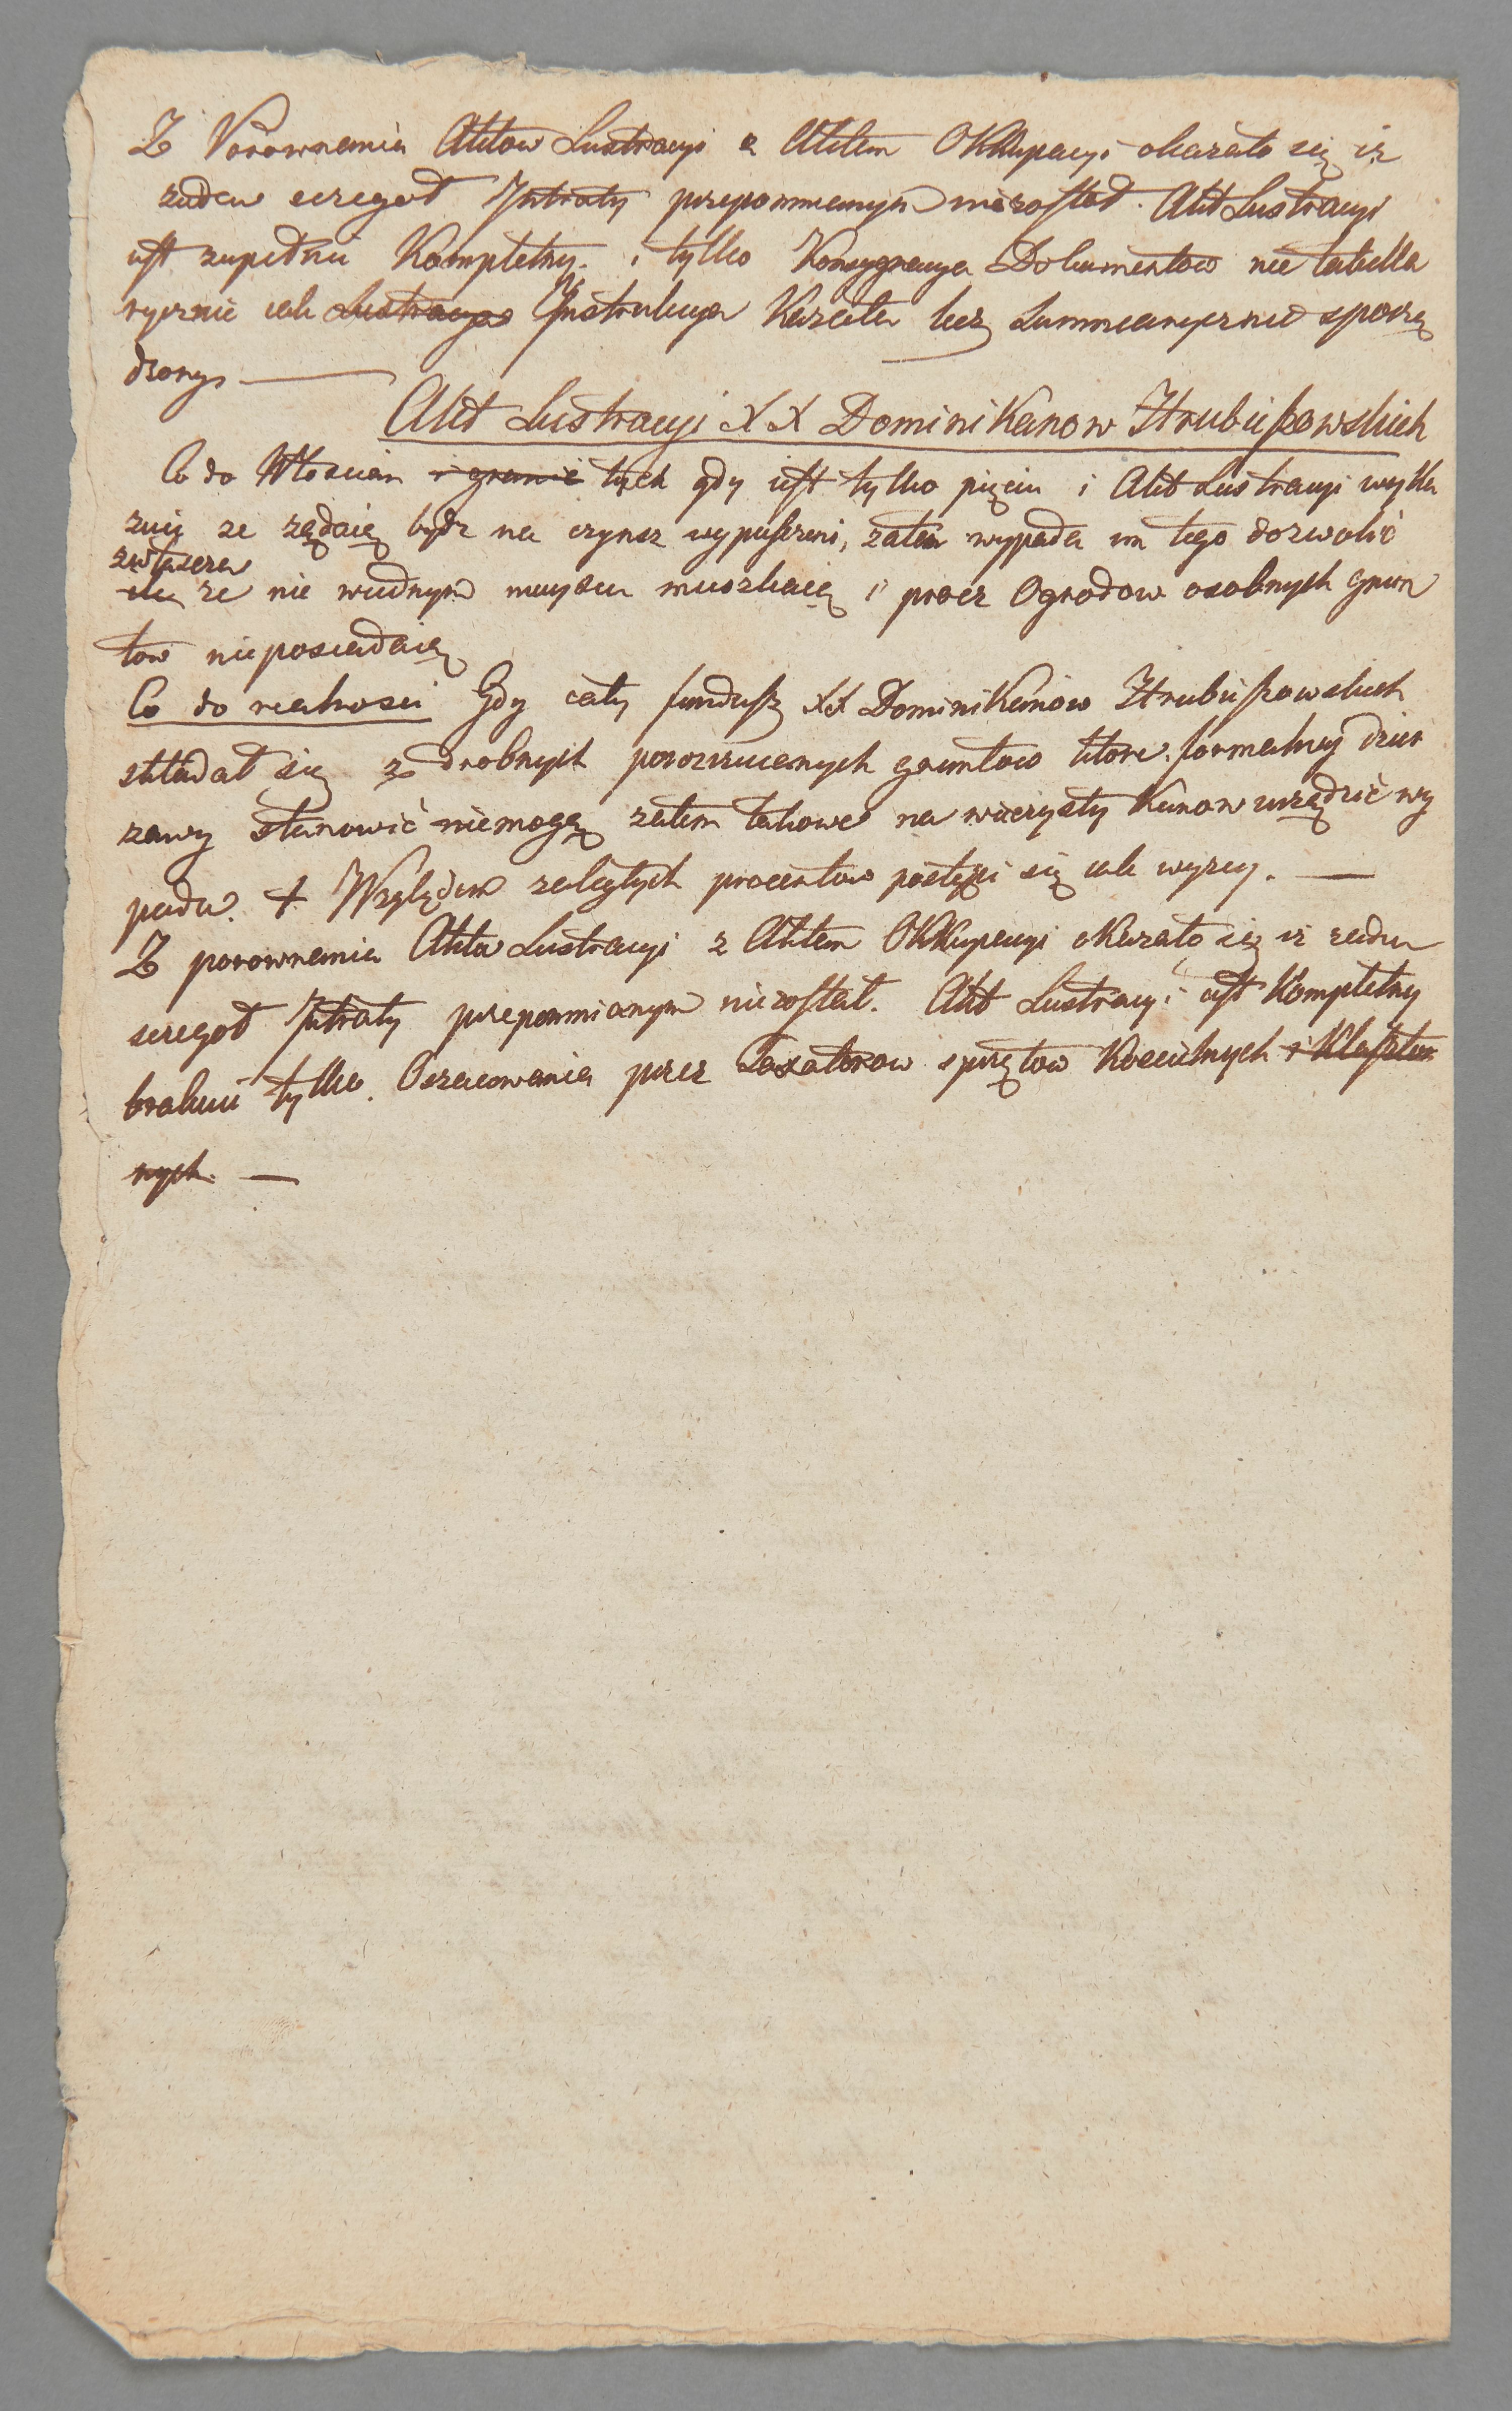 Z Porownania Aktow Lustracyi z Aktem OKKupacyi okazało się iz
zaden szczegoł Jntraty przepomnianym niezostał. Akt Lustracyi
iest zupełnie Kompletny. i tylko Konsygnacya Dokumentow nie tabella
rycznie iak Lustracya Jnstrukcya Kazała lecz Summarycznie sporzą
dzony —
Akt Lustracyi XX Dominikanow Hrubieszowskich
Co do Włoscian i granic tych gdy iest tylko pięciu i Akt Lustracyi wyka
zuie ze ządaią bydz na czynsz wypuszczeni, zatem wypada im tego dozwolić
zwłaszcza
ze nie wiednym mieyscu mieszkaią i procz Ogrodow osobnych grun
tow nieposiadaią
Co do realnosci Gdy cały fundusz XX Dominikanów Hrubieszowskich
składał się z drobnych porozrzucanych gruntow ktore formalney dzier
zawy stanowić niemogą zatem takowe na wieczysty Kanon urządzić wy
pada. + Względem zaległych procentow postąpi się iak wyzey. —
Z porownania Akta Lustracyi z Aktem OKKupacyi okazało się iz zaden
szczegoł Jntraty przepomnianym niezostał. Akt Lustracyi iest Kompletny
brakuie tylko Oszacowania przez Taxatorow sprzętow Koscielnych i Klasztor
nych. —